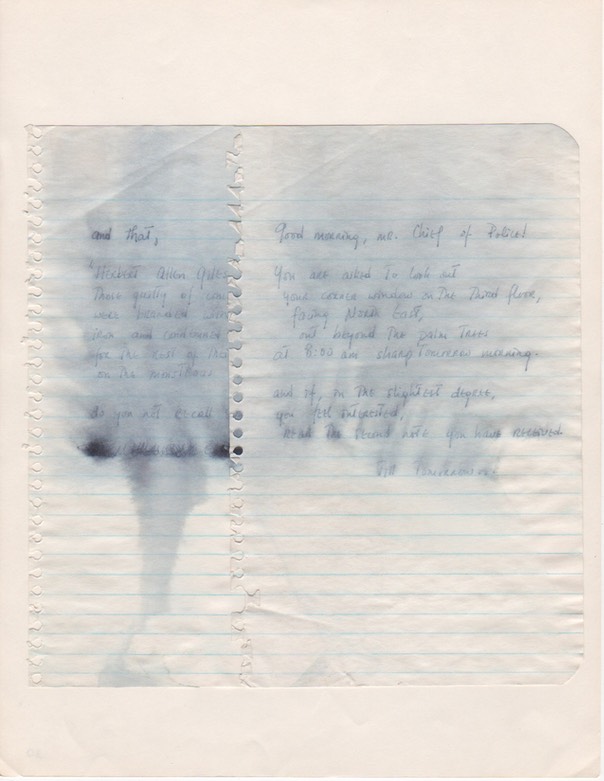 and that,
"HERBERT Allen Giles
Those guilty of
were branded with
iron and condemned
for the rest of
on the
do you not recall
Good morning, mr. Chief of Police!
You are asked to look out
your corner window on the Third floor,
facing North East,
out beyond The palm Trees
at 8:00 am sharp Tomorrow morning.
and if, in The slightest degree,
you feel interested,
READ The second note you have RECEIVED
Till Tomorrow